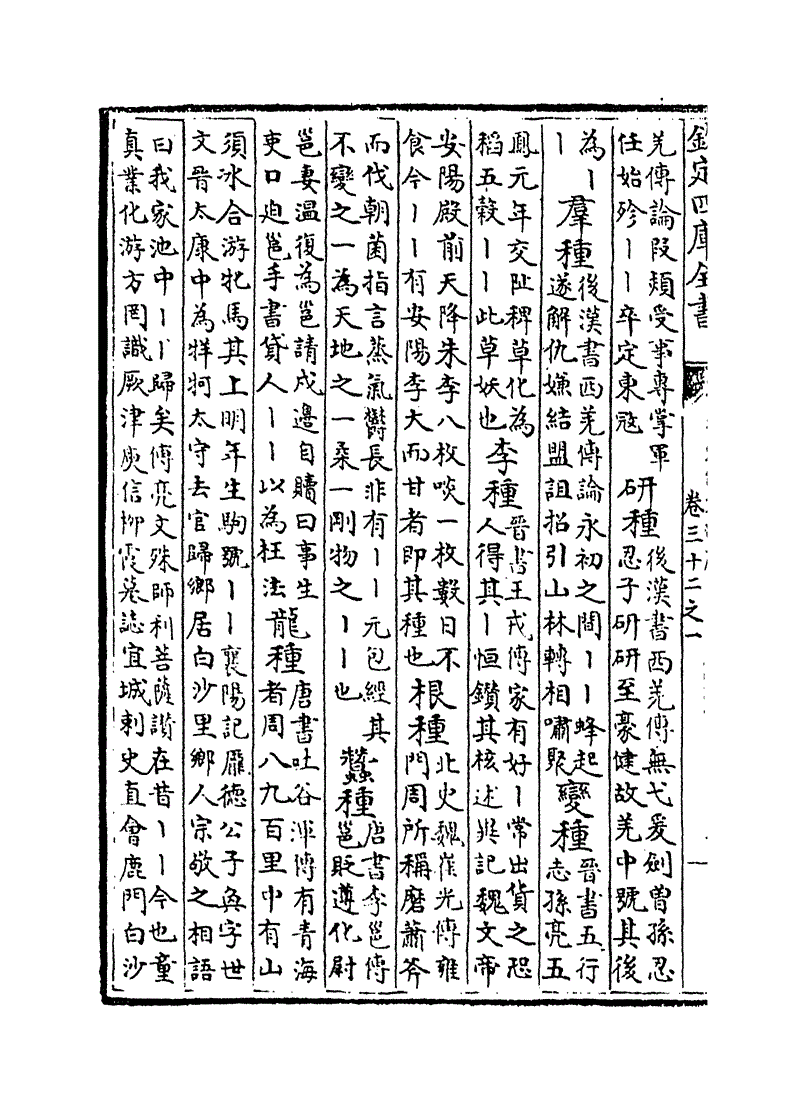 欽定四庫全書
卷三十二之一
羌傳論段熲受事專掌軍
任始殄丨丨卒定東寇
研種
後漢書西羌傳無弋爰劍曾孫忍
忍子研研至豪健故羌中號其後
為丨
丨
羣種
後漢書西羌傳論永初之間丨丨蜂起
遂解仇嫌結盟詛招引山林轉相嘯聚
變種
晉書五行
志孫亮五
鳳元年交阯稗草化為
稻五穀丨丨此草妖也
李種
晉書王戎傳家有好丨常出貨之恐
人得其丨恒鑽其核述異記魏文帝
安陽殿前天降朱李八枚啖一枚數日不
食今丨丨有安陽李大而甘者即其種也
根種
北史魏崔光傳雍
門周所稱磨蕭斧
而伐朝菌指言蒸氣鬱長非有丨丨元包經其
不變之一為天地之一柔一剛物之丨丨也
蠶種
唐書李邕傳
邕貶遵化尉
邕妻温復為邕請戍邊自贖曰事生
吏口迫邕手書貸人丨丨以為枉法
龍種
唐書吐谷渾傳有青海
者周八九百里中有山
須冰合游牝馬其上明年生駒號丨丨襄陽記龐德公子奐字世
文晉太康中為牂牁太守去官歸鄉居白沙里鄉人宗敬之相語
曰我家池中丨丨歸矣傅亮文殊師利菩薩讚在昔丨丨今也童
真業化游方罔識厥津庾信柳霞墓誌宜城刺史直會鹿門白沙